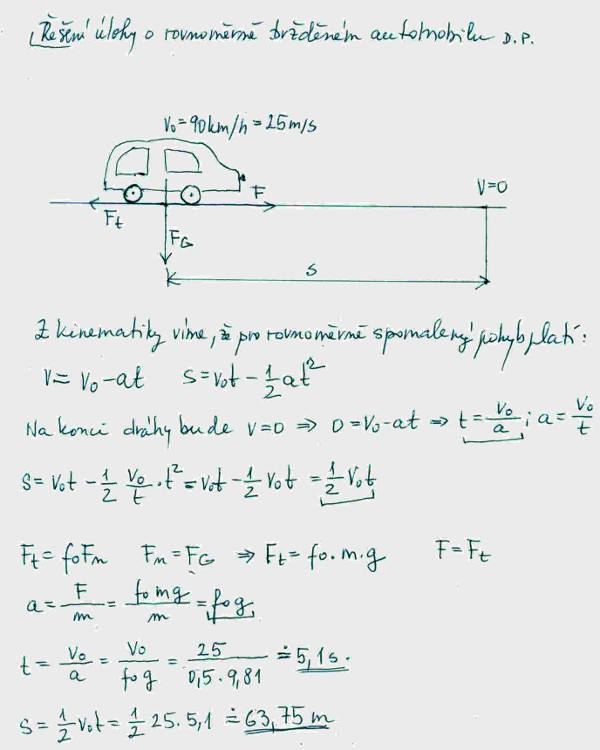 Řešení úlohy o rovnoměrně bržděném automobilu D.P.
V₀ = 90 km/h = 25 m/s
F
V=0
Fₜ
F_G
s
Z kinematiky víme, že pro rovnoměrně spomalený pohyb platí:
V = V₀ - at   s = V₀t - 1/2 at²
Na konci dráhy bude V=0 ⇒ 0 = V₀ - at ⇒ t = V₀/a ; a = V₀/t
s = V₀t - 1/2 V₀/t · t² = V₀t - 1/2 V₀t = 1/2 V₀t
Fₜ = f₀Fₙ   Fₙ = F_G ⇒ Fₜ = f₀.m.g   F = Fₜ
a = F/m = f₀mg/m = f₀g
t = V₀/a = V₀/f₀g = 25/0,5.9,81 ≐ 5,1 s.
s = 1/2 V₀t = 1/2 25.5,1 ≐ 63,75 m